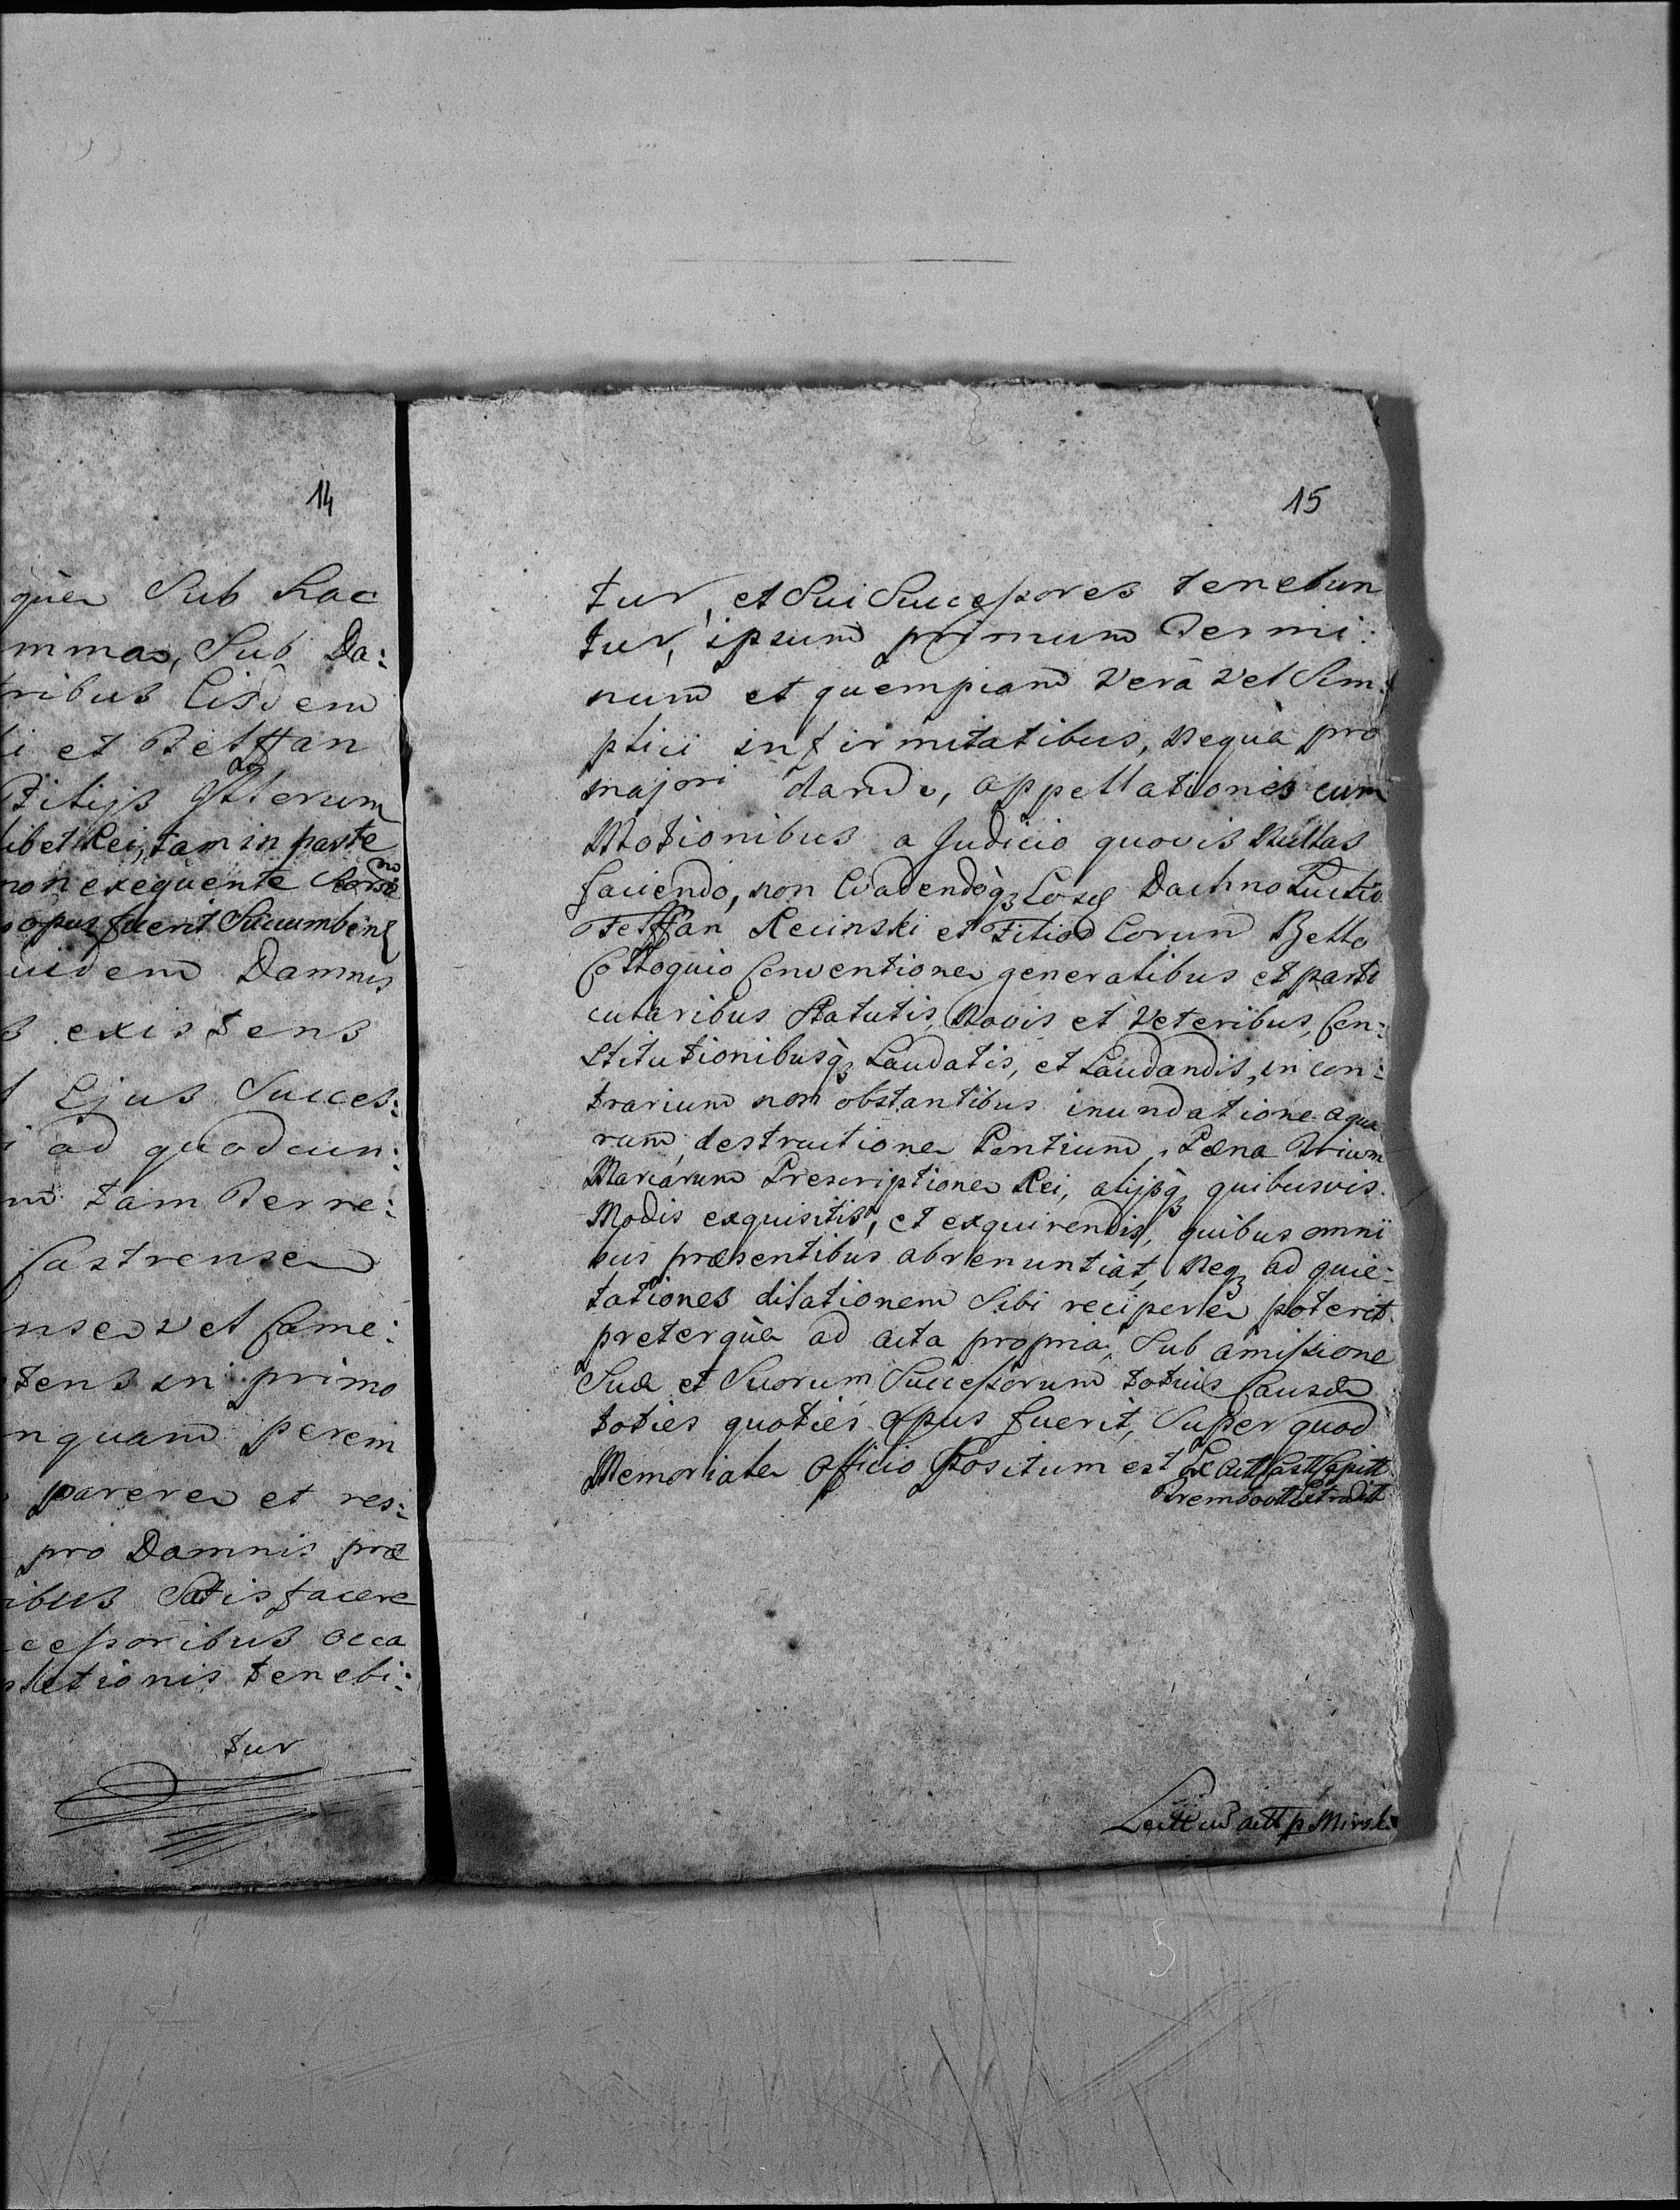 14
quea Sub hac
mmae, Sub Da:
ribus Eisdem
i et Telffan
Filijs Ipsorum
libet Rei, tam in parte
non exequente
opus fuerit Succumbens
uidem Damnis
s existens
t Ejus Succes:
i ad quodcun:
m tam Terre:
Castrense
nse vel Came:
tens in primo
nquam perem
parere et res:
pro Damnis præ
ibus Satisfacere
cessoribus occa
pletionis tenebi:
tur
15
tur, et Sui Successores tenebun
tur, ipsum primum Termi:
num et quempiam Vera Vel Sim:
plici infirmitatibus, Nequa pro
majori dandi, appellationes cum
Motionibus a Judicio quovis Nullas
faciendo, non Evadendoq3 Eosd Dachno
Telffan Recinski et Filios Eorum Bello
Colloquio Conventione generalibus et parti
cularibus Statutis, Novis et Veteribus, Con:
stitutionibusq3 Laudatis, et Laudandis, in con:
trarium non obstantibus inundatione aqua
rum, destructione Pontium, Pæna Trium
Marcarum Prescriptione Rei, alijsq3 quibusvis
Modis exquisitis, et exquirendis, quibus omni
bus præsentibus abrenuntiat, Neq3 ad quie:
tationes dilationem Sibi recipere poterit
preterqua ad acta propria, Sub amissione
Sua et Suorum Successorum totius Causæ
toties quoties opus fuerit, Super quod
Memoriale Officio Positum est Ex Actt Castt Capitt
Trembowll Extradtt
Lectt cũ actt p Mirski